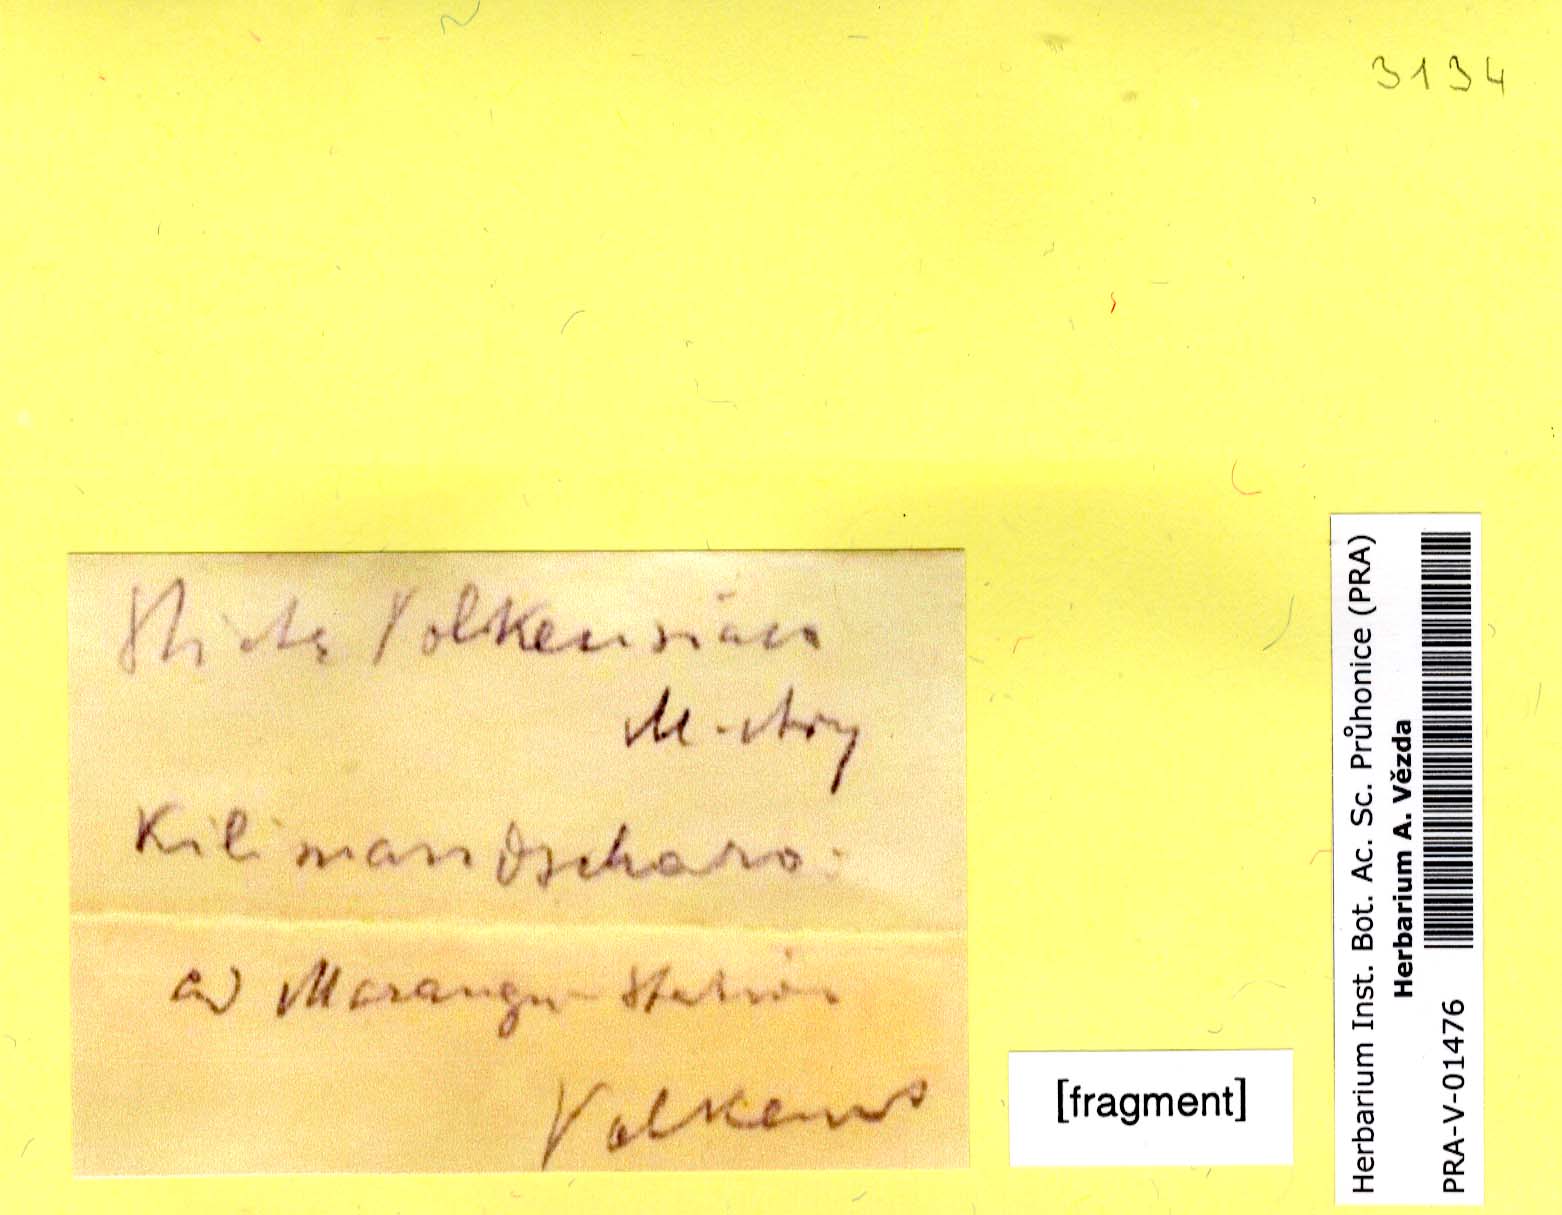 3134
Sticta Volkensiana
M. Arg
Kilimandscharo:
ad Marangu-Station
Volkens
[fragment]
Herbarium Inst. Bot. Ac. Sc. Průhonice (PRA)
Herbarium A. Vězda
PRA-V-01476